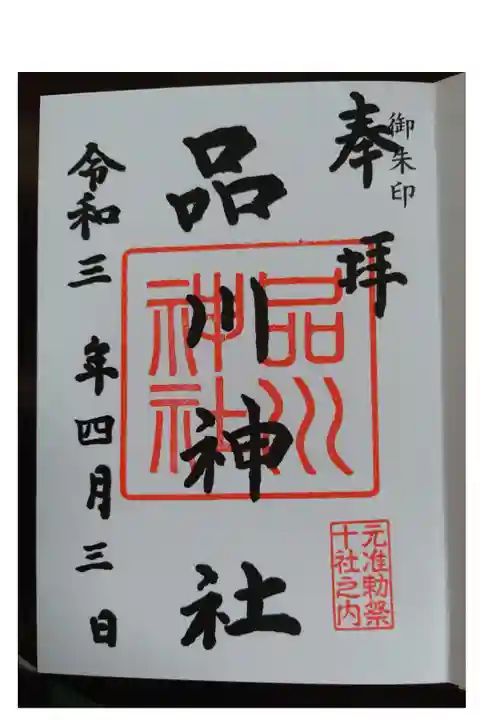 御朱印
奉拝
品川神社
品川
神社
元准勅祭
十社之内
令和三年四月三日